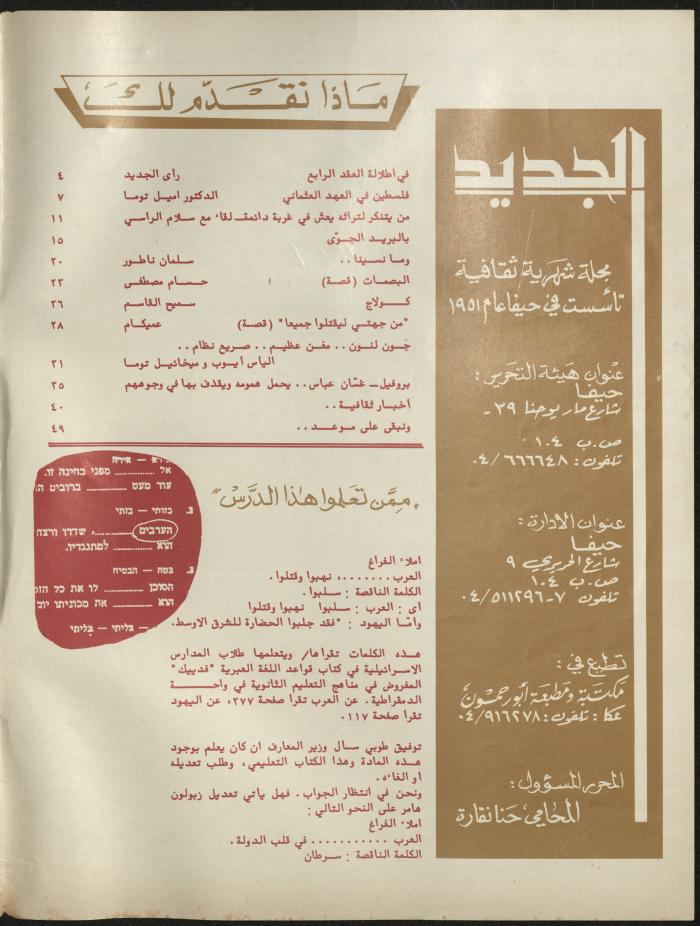 ماذا نقدّم لك
في اطلالة العقد الرابع راى الجديد ٤
فلسطين في العهد العثماني الدكتور اميل توما ٧
من يتنكر لتراثه يعش في غربة دائمة_ لقاء مع سلام الراسي ١١
بالبريد الجوّى ١٥
وما نسينا .. سلمان ناطور ٢٠
البصمات (قصة) حسام مصطفى ٢٣
كولاج سميح القاسم ٢٦
"من جهتي ليقتلوا جميعا" (قصة) عميكام ٢٨
جون لنون .. مغن عظيم .. صريع نظام ..
الياس ايوب و ميخائيل توما ٣١
بروفيل_ غسّان عباس .. يحمل همومه ويقذف بها في وجوههم ٣٥
اخبار ثقافية .. ٤٠
ونبقى على موعد .. ٤٩
"ممَّن تعلموا هذا الدَّرس"
אל ........ מפני בחינה זו.
עוד מעט ........ ברובים
ג. בזותי — בזתי
הערבים ........, שדדו ורצח
הוא ........ למתנגדיו.
ג. בטח — הבטיח
הסוכן ........ לו את כל הזמ
הוא ........ את מכוניתו
— בליתי — בְּליתי
املاء الفراغ
العرب ........، نهبوا وقتلوا .
الكلمة الناقصة : سلبوا .
اى : العرب : سلبوا نهبوا وقتلوا
وأمّا اليهود : "فقد جلبوا الحضارة للشرق الاوسط.
هذه الكلمات تقراها/ ويتعلمها طلاب المدارس
الاسرائيلية في كتاب قواعد اللغة العبرية "فدييك"
المفروض في مناهج التعليم الثانوية في واحة
الدمقراطية. عن العرب تقرا صفحة ٢٧٧، عن اليهود
تقرا صفحة ١١٧.
توفيق طوبي سال وزير المعارف ان كان يعلم بوجود
هذه المادة وهذا الكتاب التعليمي، وطلب تعديله
او الغائه.
ونحن في انتظار الجواب. فهل ياتي تعديل زبولون
هامر على النحو التالي :
املاء الفراغ
العرب ........... في قلب الدولة .
الكلمة الناقصة : سرطان
الجديد
مجلة شهرية ثقافية
تأسست في حيفا عام ١٩٥١
عنوان هيئة التحرير :
حيفا
شارع مار يوحنا ٣٩ -
ص.ب ١٠٤
تلفون : ٠٤/٦٦٦٦٤٨
عنوان الادارة :
حيفا
شارع الحريري ٩
ص.ب ١٠٤
تلفون ٧-٠٤/٥١١٢٩٦
تطبع في :
مكتبة ومطبعة أبو رحمون
عكا : تلفون : ٠٤/٩١٦٢٧٨
المحرر المسؤول :
المحامي حنا نقارة